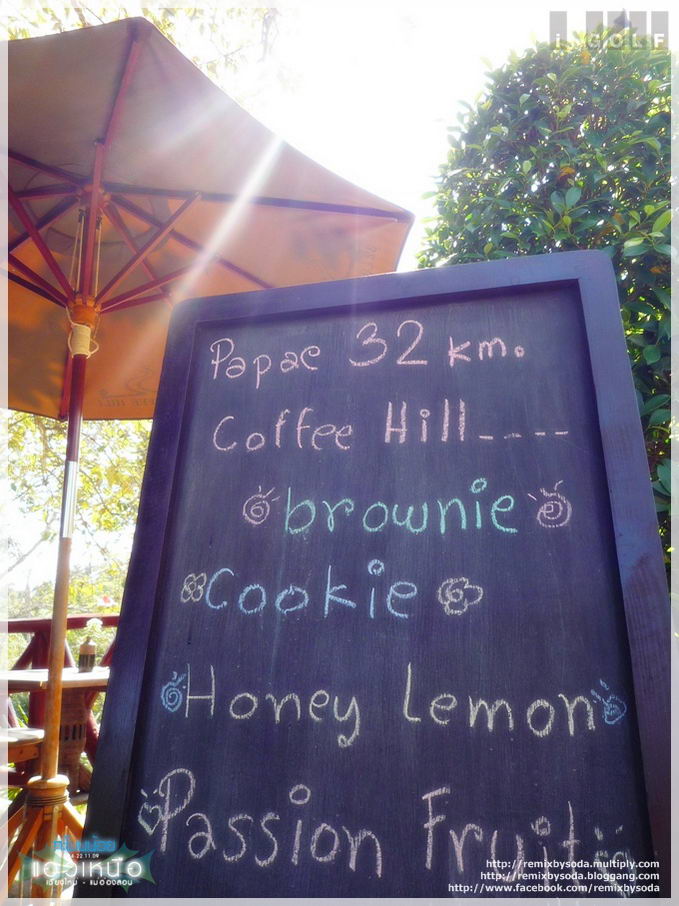 iGOLF
Papae 32 km.
Coffee Hill----
brownie
Cookie
Honey Lemon
Passion Fruit
แอ่วเหนือ
http://remixbysoda.multiply.com
http://remixbysoda.bloggang.com
http://www.facebook.com/remixbysoda